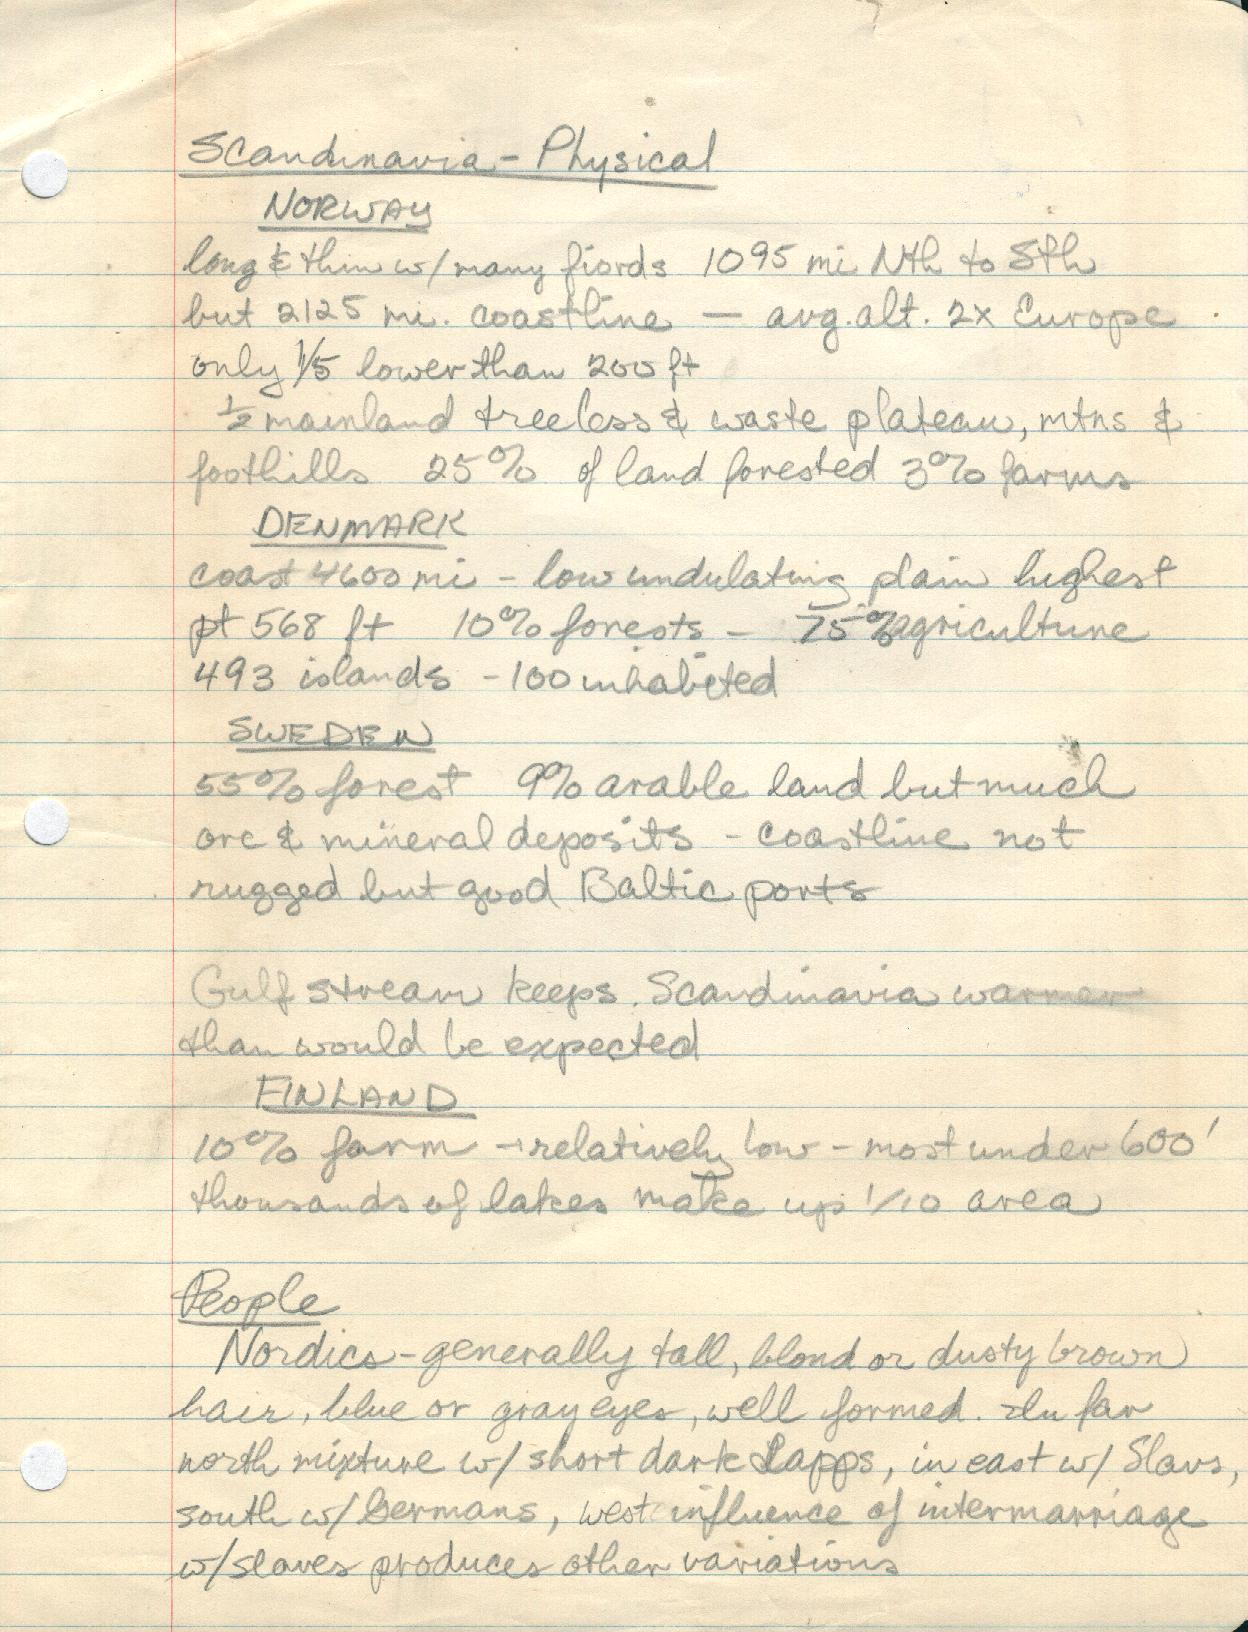 Scandinavia - Physical
NORWAY
long & thin w/ many fiords 1095 mi Nth to Sth
but 2125 mi. coastline — avg. alt. 2x Europe
only 1/5 lower than 200 ft
1/2 mainland treeless & waste plateau, mtns &
foothills 25% of land forested 3% farms
DENMARK
coast 4600 mi - low undulating plain highest
pt 568 ft 10% forests - 75% agriculture
493 islands - 100 inhabited
SWEDEN
55% forest 9% arable land but much
ore & mineral deposits - coastline not
rugged but good Baltic ports
Gulf stream keeps Scandinavia warmer
than would be expected
FINLAND
10% farm - relatively low - most under 600'
thousands of lakes make up 1/10 area
People
Nordics - generally tall, blond or dusty brown
hair, blue or gray eyes, well formed. In far
north mixture w/ short dark Lapps, in east w/ Slavs,
south w/ Germans, west influence of intermarriage
w/ slaves produces other variations